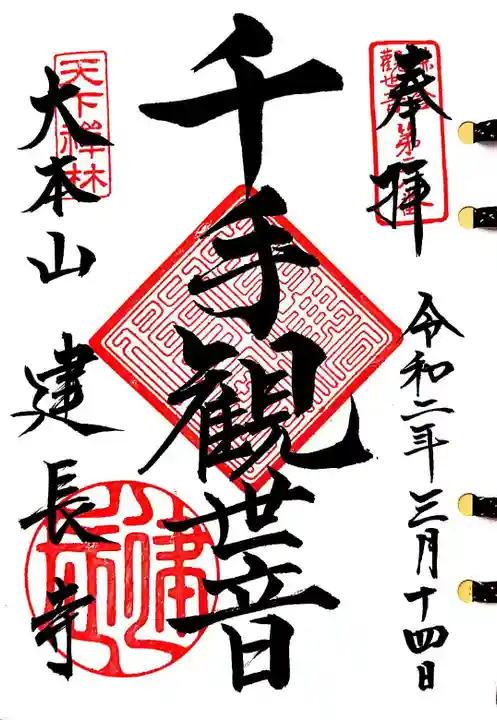 奉拝
令和二年三月十四日
千手観世音
天下禅林
大本山 建長寺